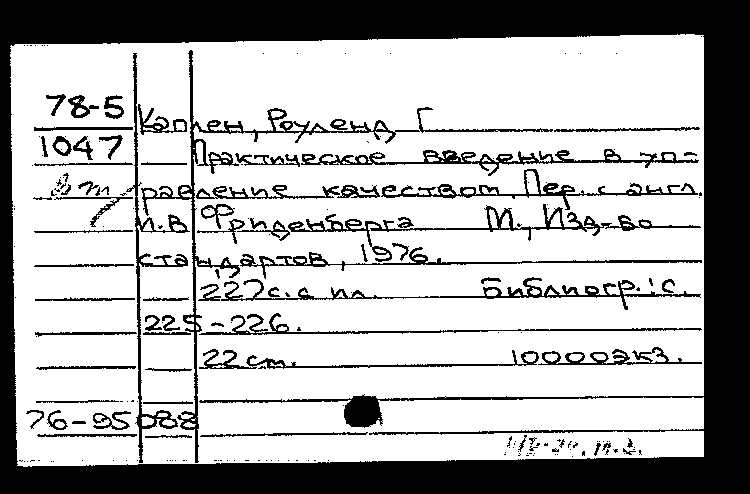 78-5
1047
Каплен, Роуленд Г
Практическое введение в уп-
равление качеством. Пер. с англ.
И.В Фриденберга М., Изд-во
стандартов, 1976.
227с. с ил. Библиогр.: с.
225-226.
22 ст. 10000экз.
76-95088